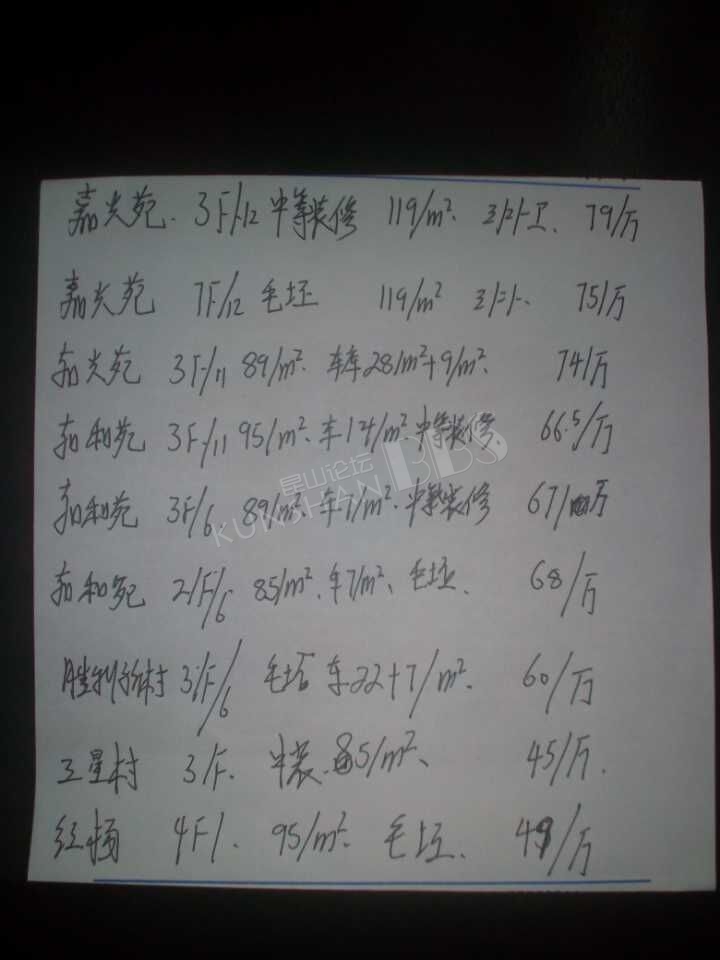 嘉光苑. 3F/12 中等装修 119/m². 三阝卜卫. 79/万
嘉光苑 7F/12 毛坯 119/m² 75/万
光苑 3F/11 89/m². 车库28/m²+9/m². 74/万
和苑 3F/11 95/m². 车14/m². 中等装修. 66.5/万
昆山论坛 BBS
KUNSHAN
和苑 3F/6. 89/m². 车7/m². 中等装修 67/万
和苑 2/F/6 85/m². 车7/m²、毛坯. 68/万
胜利新村 3/F/6 毛坯 车22+7/m². 60/万
三星村 3/F. 中装. 85/m²、 45/万.
红杨 4F/. 95/m². 毛坯. 49/万